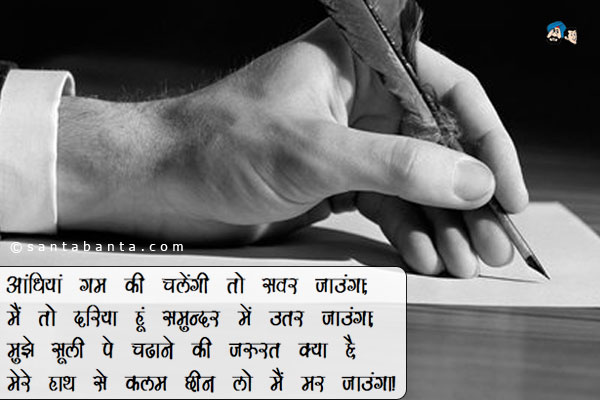 © santabanta.com
आंधियां गम की चलेंगी तो सवर जाउंगा;
मैं तो दरिया हूं समुन्दर में उतर जाउंगा;
मुझे सूली पे चढाने की जरुरत क्या है;
मेरे हाथ से कलम छीन लो मैं मर जाउंगा!